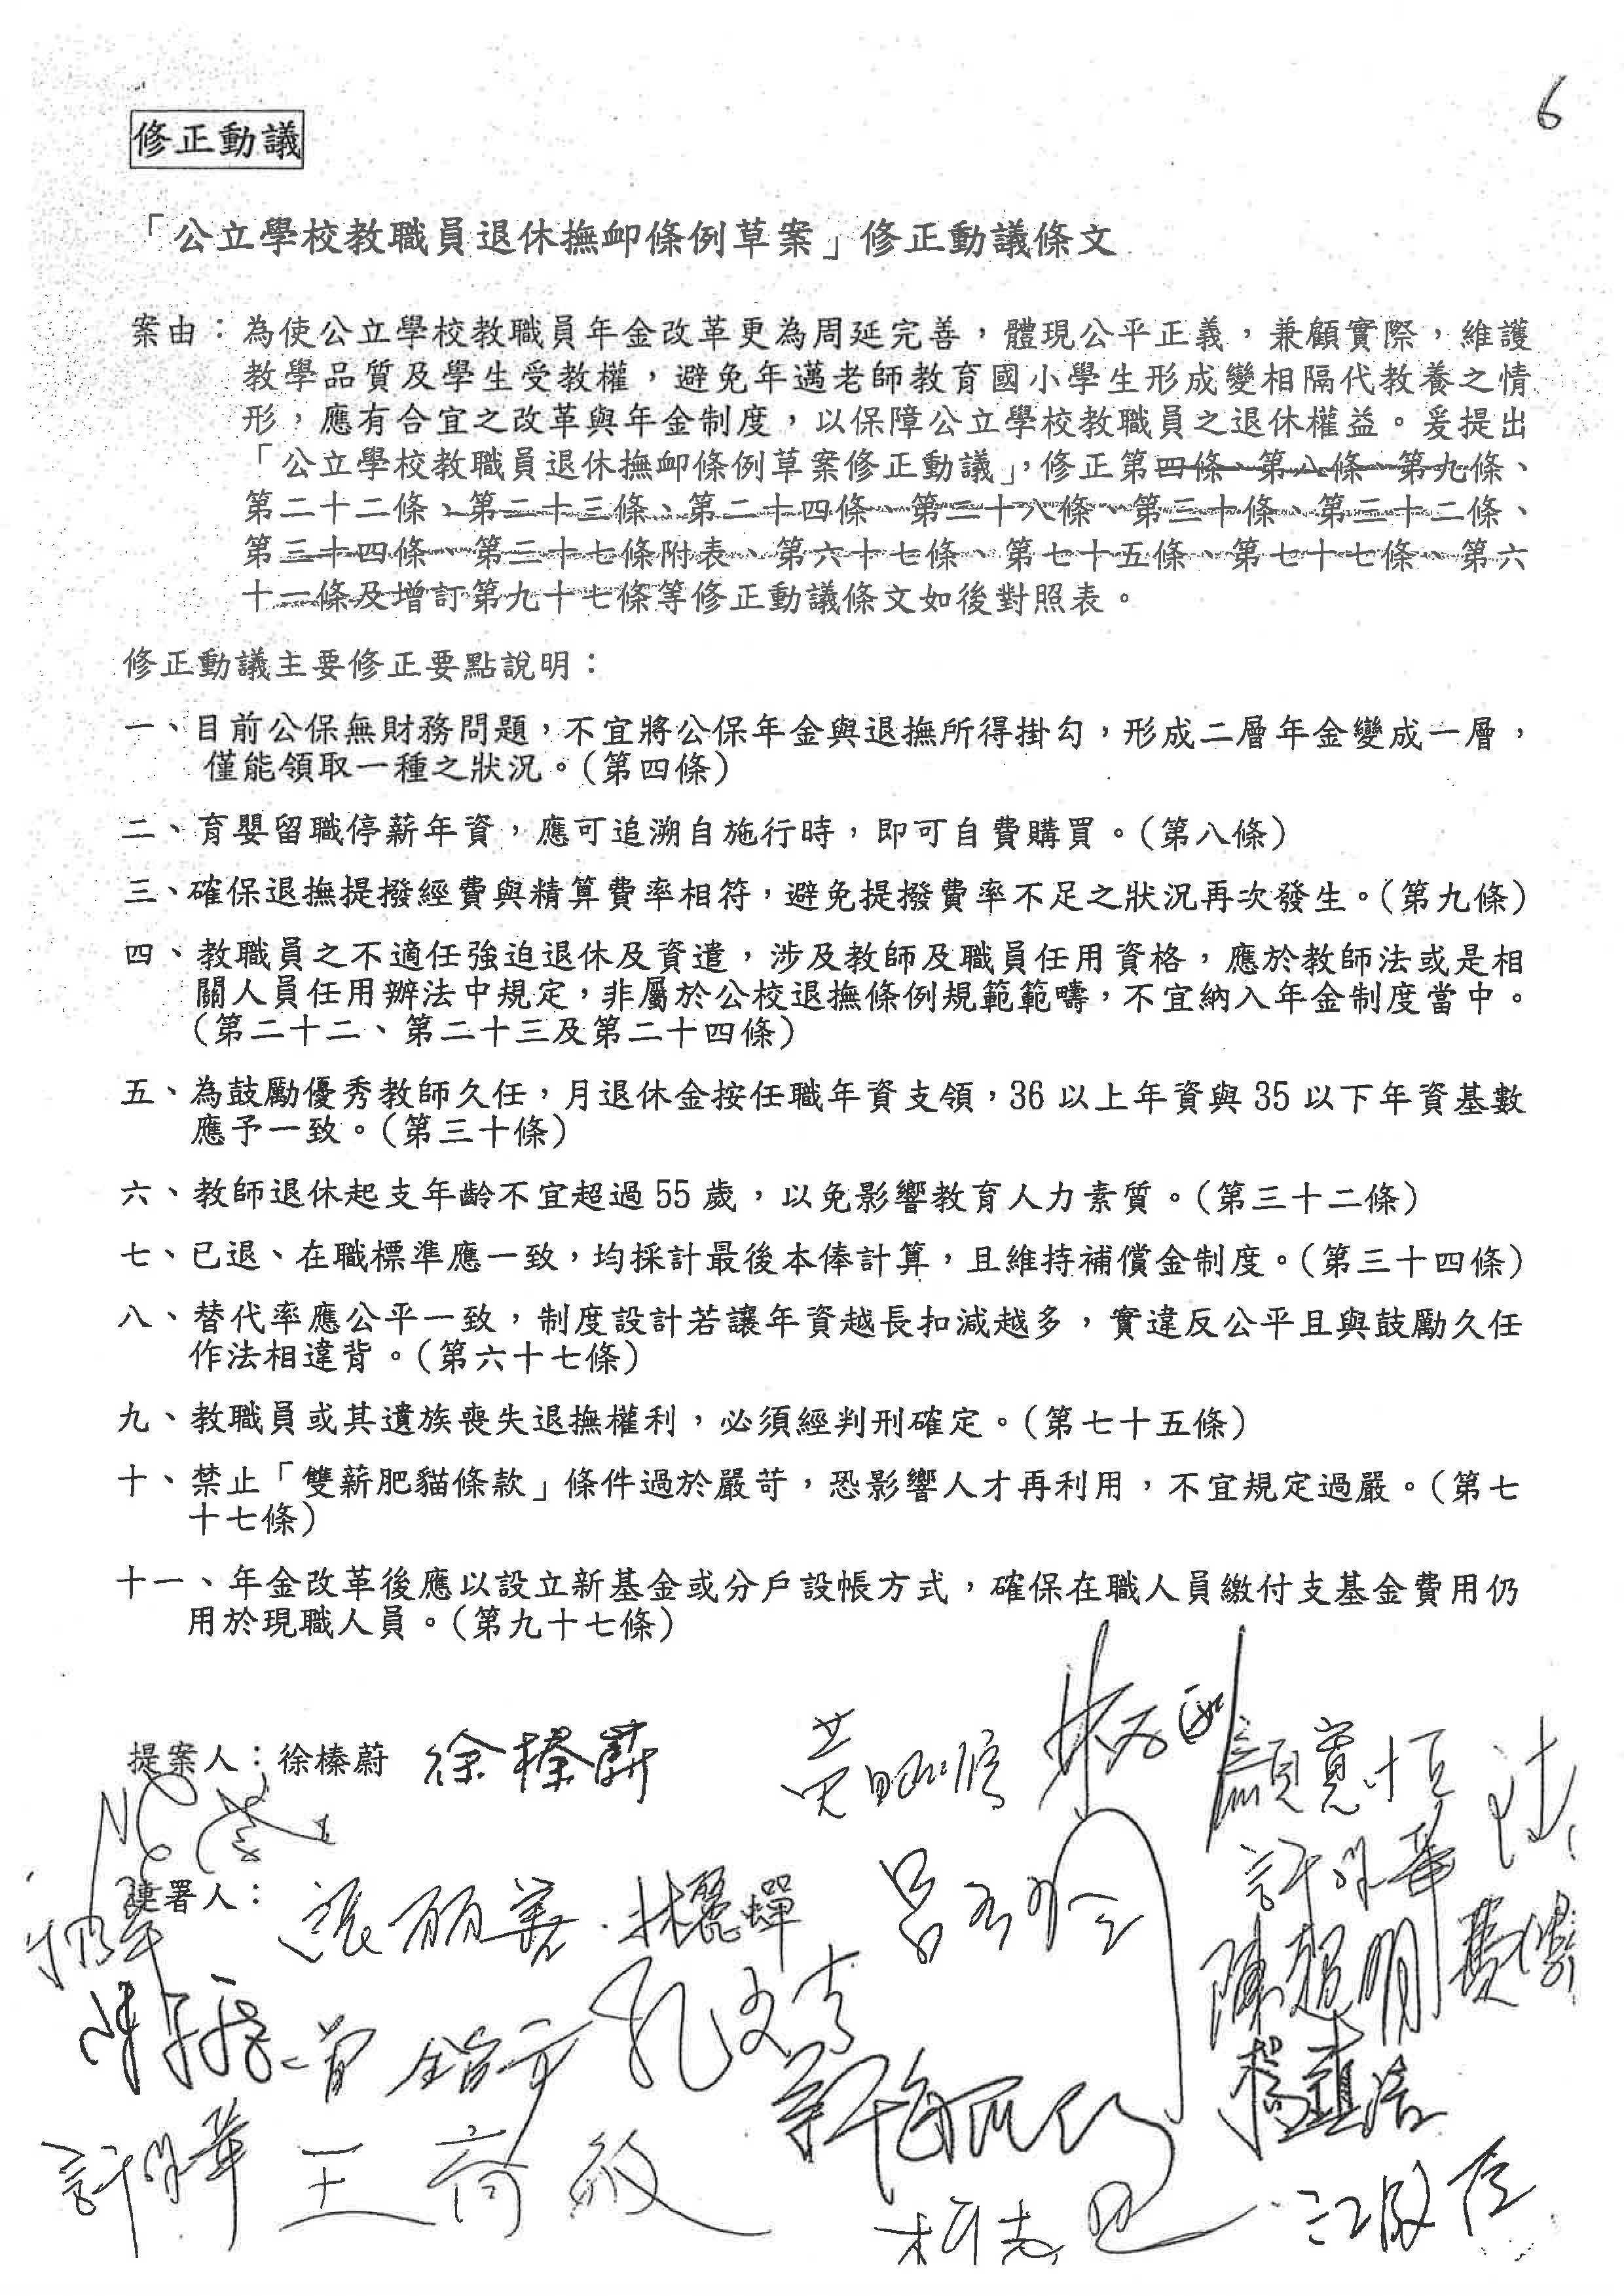 6
修正動議
「公立學校教職員退休撫卹條例草案」修正動議條文
案由：為使公立學校教職員年金改革更為周延完善，體現公平正義，兼顧實際，維護
教學品質及學生受教權，避免年邁老師教育國小學生形成變相隔代教養之情
形，應有合宜之改革與年金制度，以保障公立學校教職員之退休權益。爰提出
「公立學校教職員退休撫卹條例草案修正動議」，修正第四條、第八條、第九條、
第二十二條、第二十三條、第二十四條、第二十八條、第三十條、第三十二條、
第三十四條、第三十七條附表、第六十七條、第七十五條、第七十七條、第六
十一條及增訂第九十七條等修正動議條文如後對照表。
修正動議主要修正要點說明：
一、目前公保無財務問題，不宜將公保年金與退撫所得掛勾，形成二層年金變成一層，
僅能領取一種之狀況。（第四條）
二、育嬰留職停薪年資，應可追溯自施行時，即可自費購買。（第八條）
三、確保退撫提撥經費與精算費率相符，避免提撥費率不足之狀況再次發生。（第九條）
四、教職員之不適任強迫退休及資遣，涉及教師及職員任用資格，應於教師法或是相
關人員任用辦法中規定，非屬於公校退撫條例規範範疇，不宜納入年金制度當中。
（第二十二、第二十三及第二十四條）
五、為鼓勵優秀教師久任，月退休金按任職年資支領，36以上年資與35以下年資基數
應予一致。（第三十條）
六、教師退休起支年齡不宜超過55歲，以免影響教育人力素質。（第三十二條）
七、已退、在職標準應一致，均採計最後本俸計算，且維持補償金制度。（第三十四條）
八、替代率應公平一致，制度設計若讓年資越長扣減越多，實違反公平且與鼓勵久任
作法相違背。（第六十七條）
九、教職員或其遺族喪失退撫權利，必須經判刑確定。（第七十五條）
十、禁止「雙薪肥貓條款」條件過於嚴苛，恐影響人才再利用，不宜規定過嚴。（第七
十七條）
十一、年金改革後應以設立新基金或分戶設帳方式，確保在職人員繳付支基金費用仍
用於現職人員。（第九十七條）
提案人：徐榛蔚 徐榛蔚 黃昭順 顏寬恒
連署人： 張麗善 林麗蟬 呂玉玲 許淑華
陳超明 費鴻泰
曾銘宗 孔文吉
楊鎮浯
許淑華 王育敏
柯志恩 江啟臣